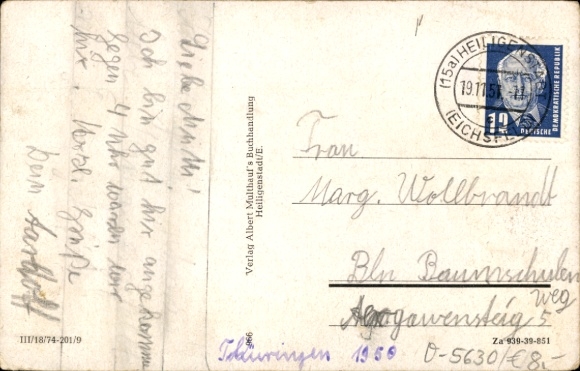 Liebe Mutti!
Ich bin gut hier angekommen
gegen 4 Uhr waren wir
hier. Herzl. Grüße
Dein
Verlag Albert Multhauf's Buchhandlung
Heiligenstadt/E.
966
III/18/74-201/9
(15a) HEILIGENSTADT
19.11.51
(EICHSFELD)
12
DEUTSCHE
DEMOKRATISCHE REPUBLIK
Frau
Marg. Wollbrandt
Bln Baumschulen
weg
5
Za 939-39-851
Thüringen 1950
0-5630/€ 8,-